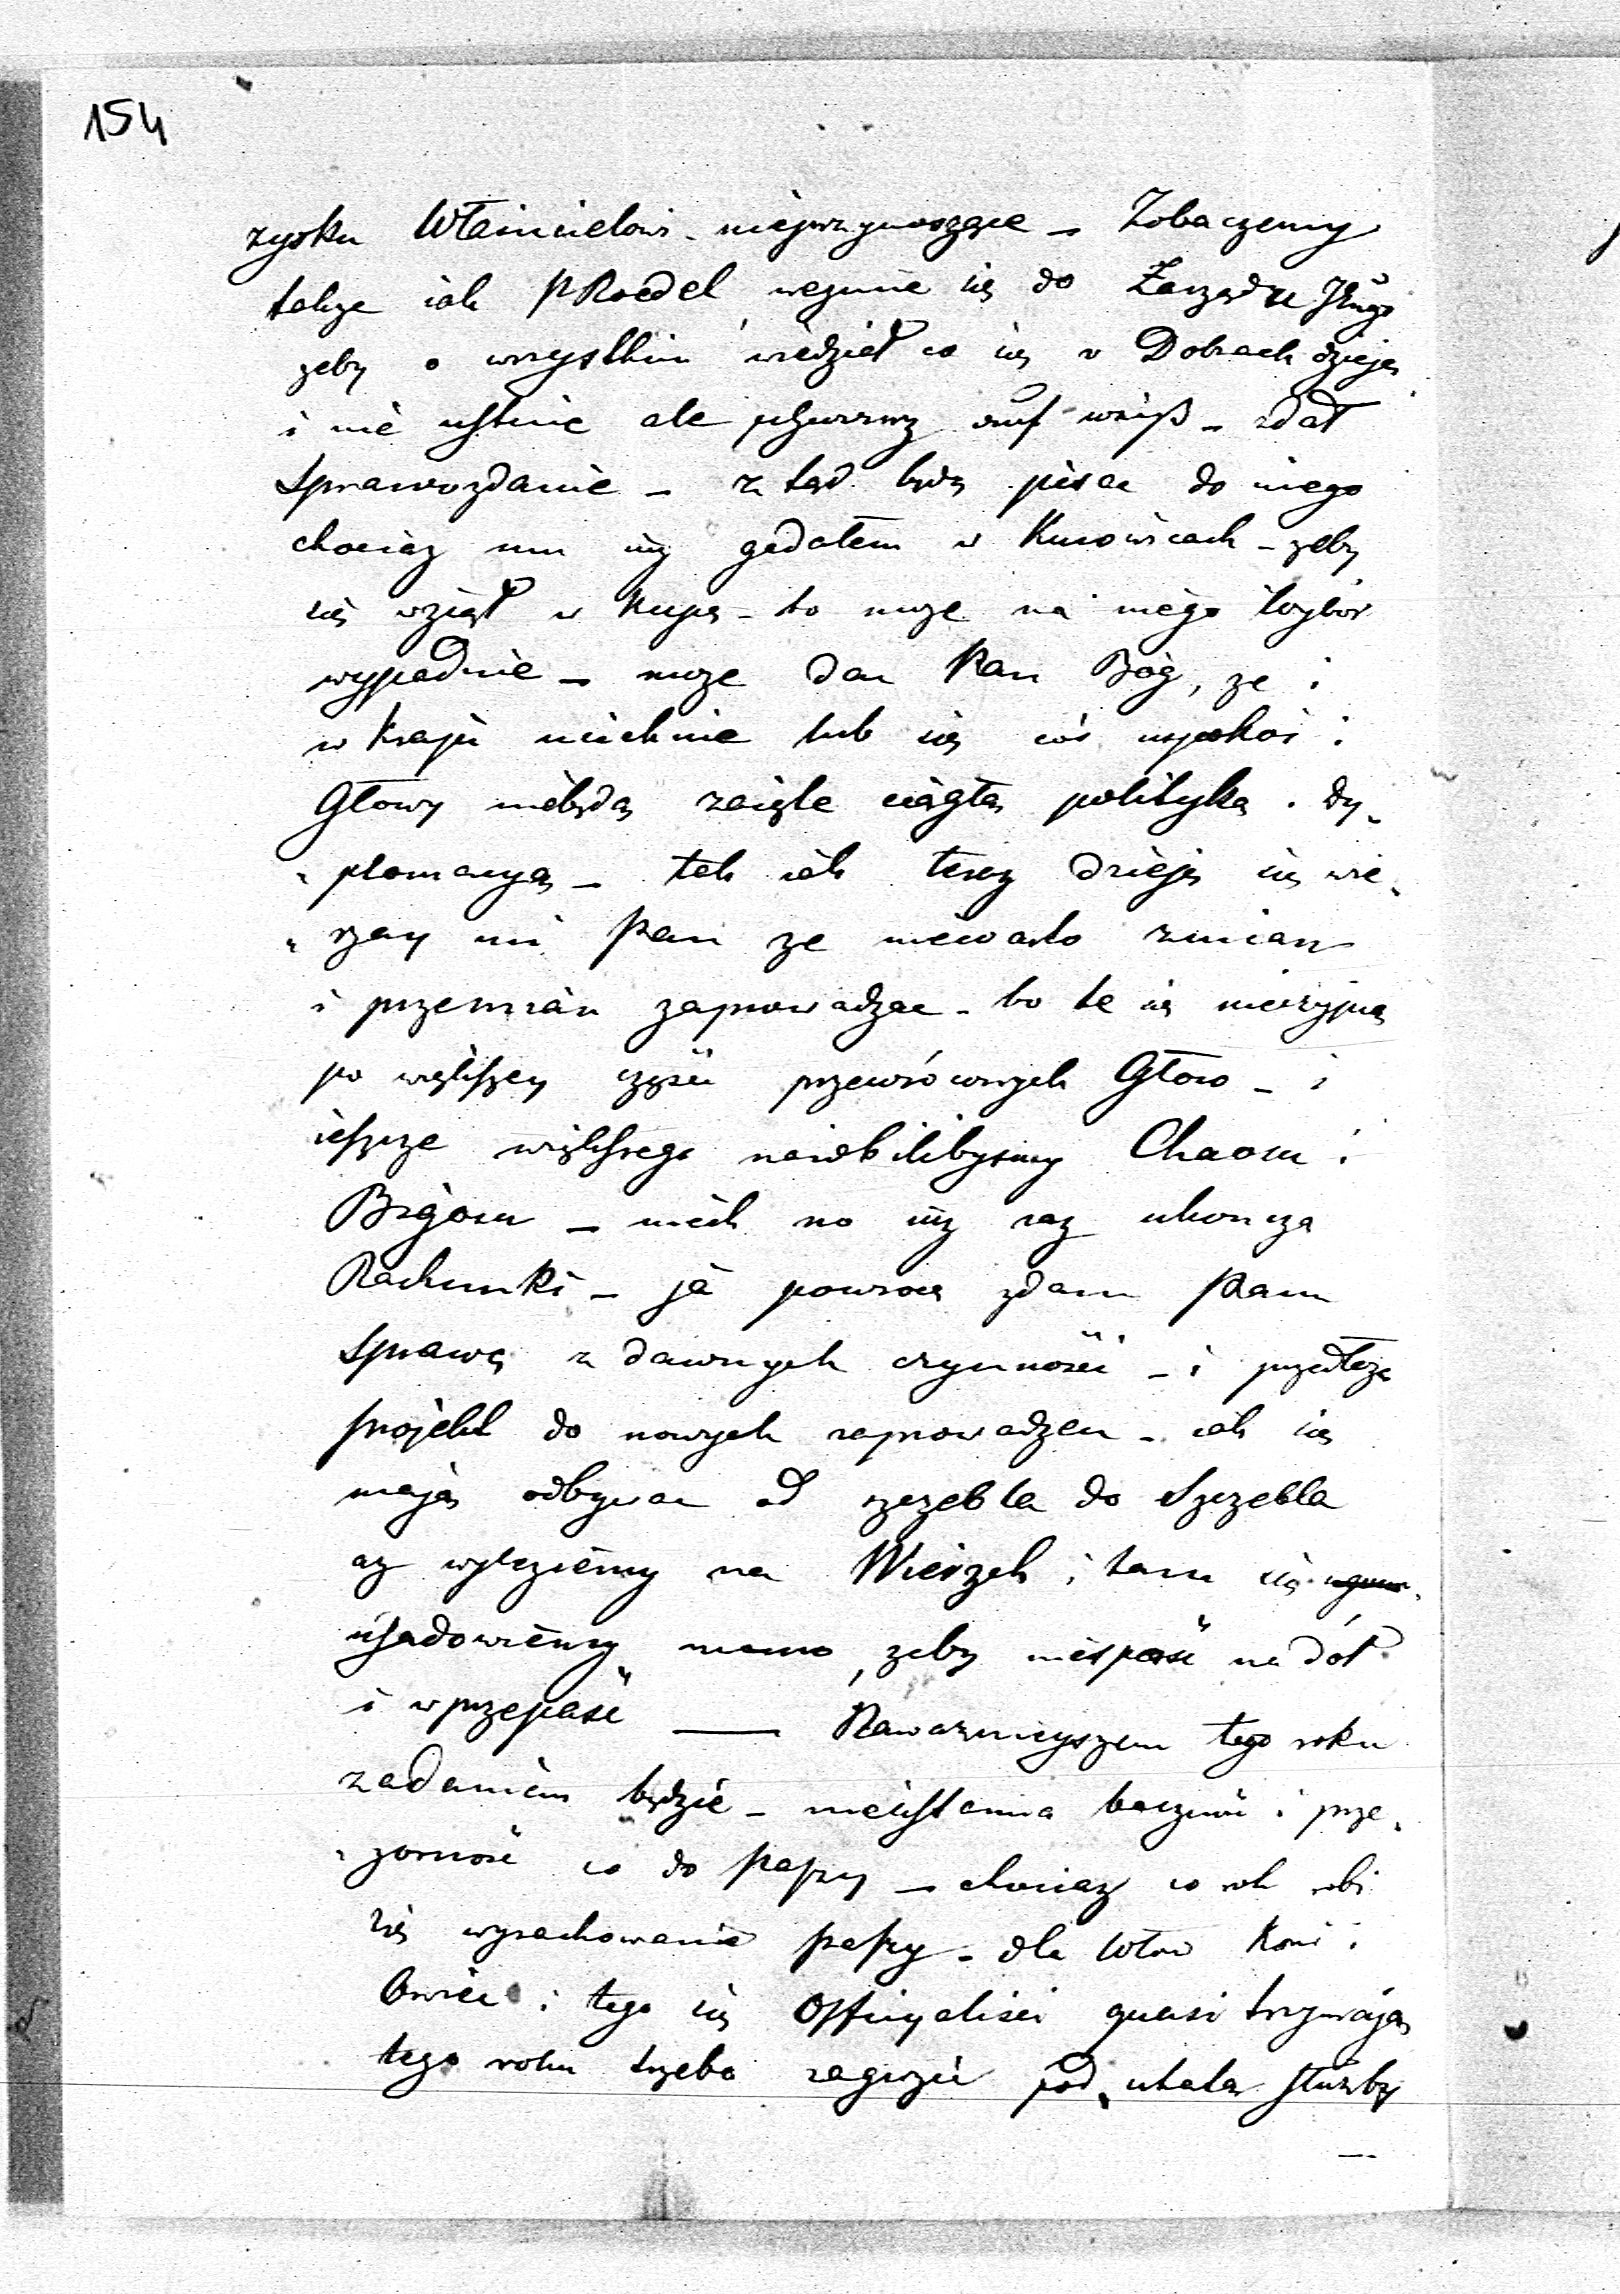 154
zysku Właścicielowi nieprzynoszące – Zobaczemy
także iak P Roedel weźmie się do Zarządu
zeby o wszystkim wiedział co się w Dobrach dzieje
i nie ustnie ale schwarz auf weiß – zdał
Sprawozdanie – z tąd będę pisać do niego
chociaz mu iuż gadałem w Kurowicach – zeby
się wziął w Kupę – to może na niego Wybór
wypadnie – moze da Pan Bóg, ze i
w Kraju ucichnie lub się coś uspokoi i
Głowy niebędą zaięte ciągłą polityką i dy„
„plomacyą – tak iak teraz dzieje się wie„
„rzay mi Pan ze niewarto zmian
i przemian zaprowadzac – bo te się nieprzyjmą
po większey części przewróconych Głow – i
ieszcze większego narobilibysmy Chaosu i
Bigosu – niech no iuż raz ukoncza
Rachunki – ja powrocę zdam Panu
Sprawę z dawnych czynności – i przedłożę
projekt do nowych zaprowadzen – iak się
mają odbywac od szczebla do Szczebla
az wyleziemy na Wierzch i tam się
usadowiemy mocno, zeby niespaść na dół
i w przepaść — Nawazniejszem tego roku
zadaniem będzie – nieustanna baczność i prze„
„zorność co do paszy – chociaz co rok robi
się wyrachowanie paszy – dla Wołow Koni i
Owiec i tego się Officyalisci quasi trzymają
tego roku trzeba zagrozić pod utratą służby